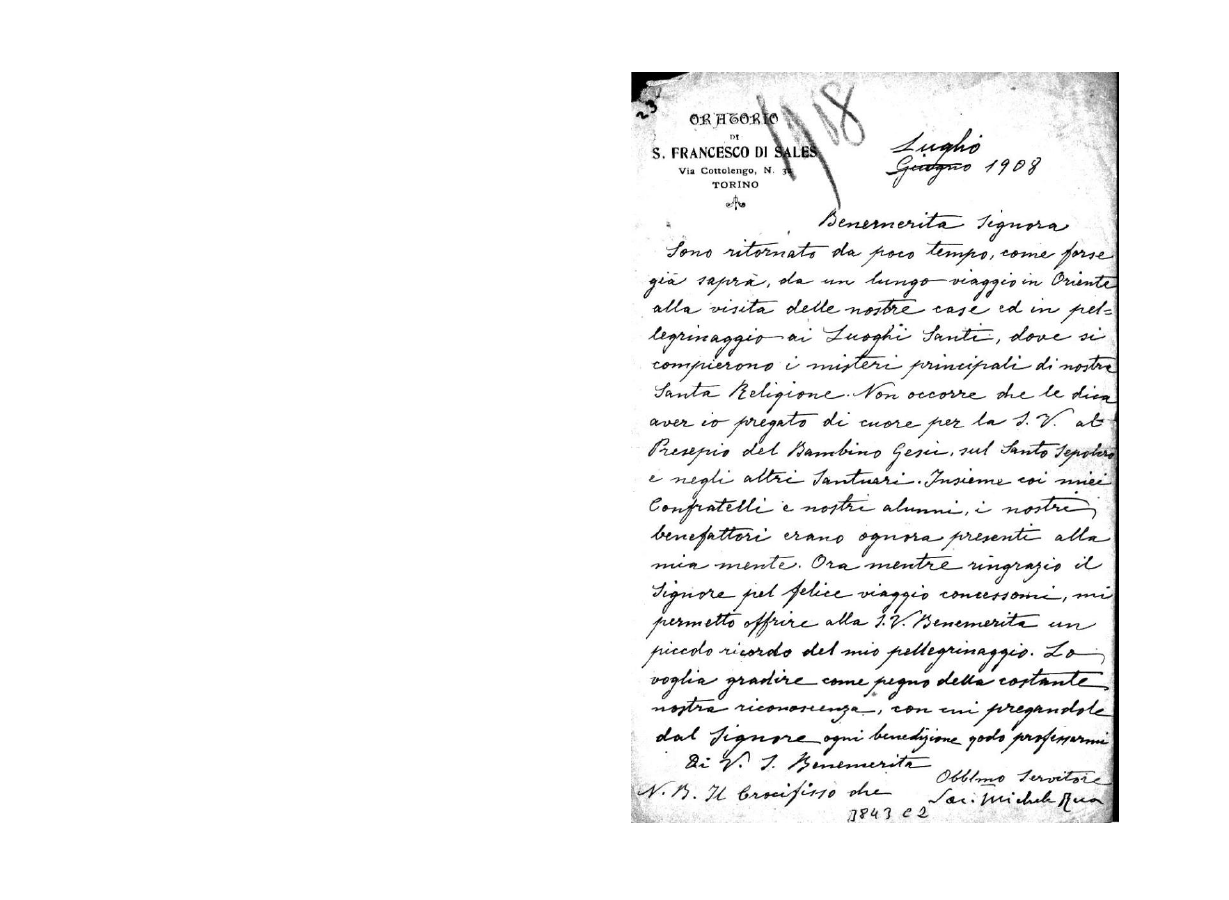 23
1908
ORATORIO
DI
S. FRANCESCO DI SALES
Via Cottolengo, N. 32
TORINO
Luglio
Giugno 1908
Benemerita Signora
Sono ritornato da poco tempo, come forse
già saprà, da un lungo viaggio in Oriente
alla visita delle nostre case ed in pel=
legrinaggio ai Luoghi Santi, dove si
compierono i misteri principali di nostra
Santa Religione. Non occorre che le dica
aver io pregato di cuore per la S. V. al
Presepio del Bambino Gesù, sul Santo Sepolcro
e negli altri Santuari. Insieme coi miei
Confratelli e nostri alunni, i nostri
benefattori erano ognora presenti alla
mia mente. Ora mentre ringrazio il
Signore pel felice viaggio concessomi, mi
permetto offrire alla S. V. Benemerita un
piccolo ricordo del mio pellegrinaggio. Lo
voglia gradire come pegno della costante
nostra riconoscenza, con cui pregandole
dal Signore ogni benedizione godo professarmi
Di V. S. Benemerita
Obblmo Servitore
N. B. Il Crocifisso che
Sac. Michele Rua
B843 C2